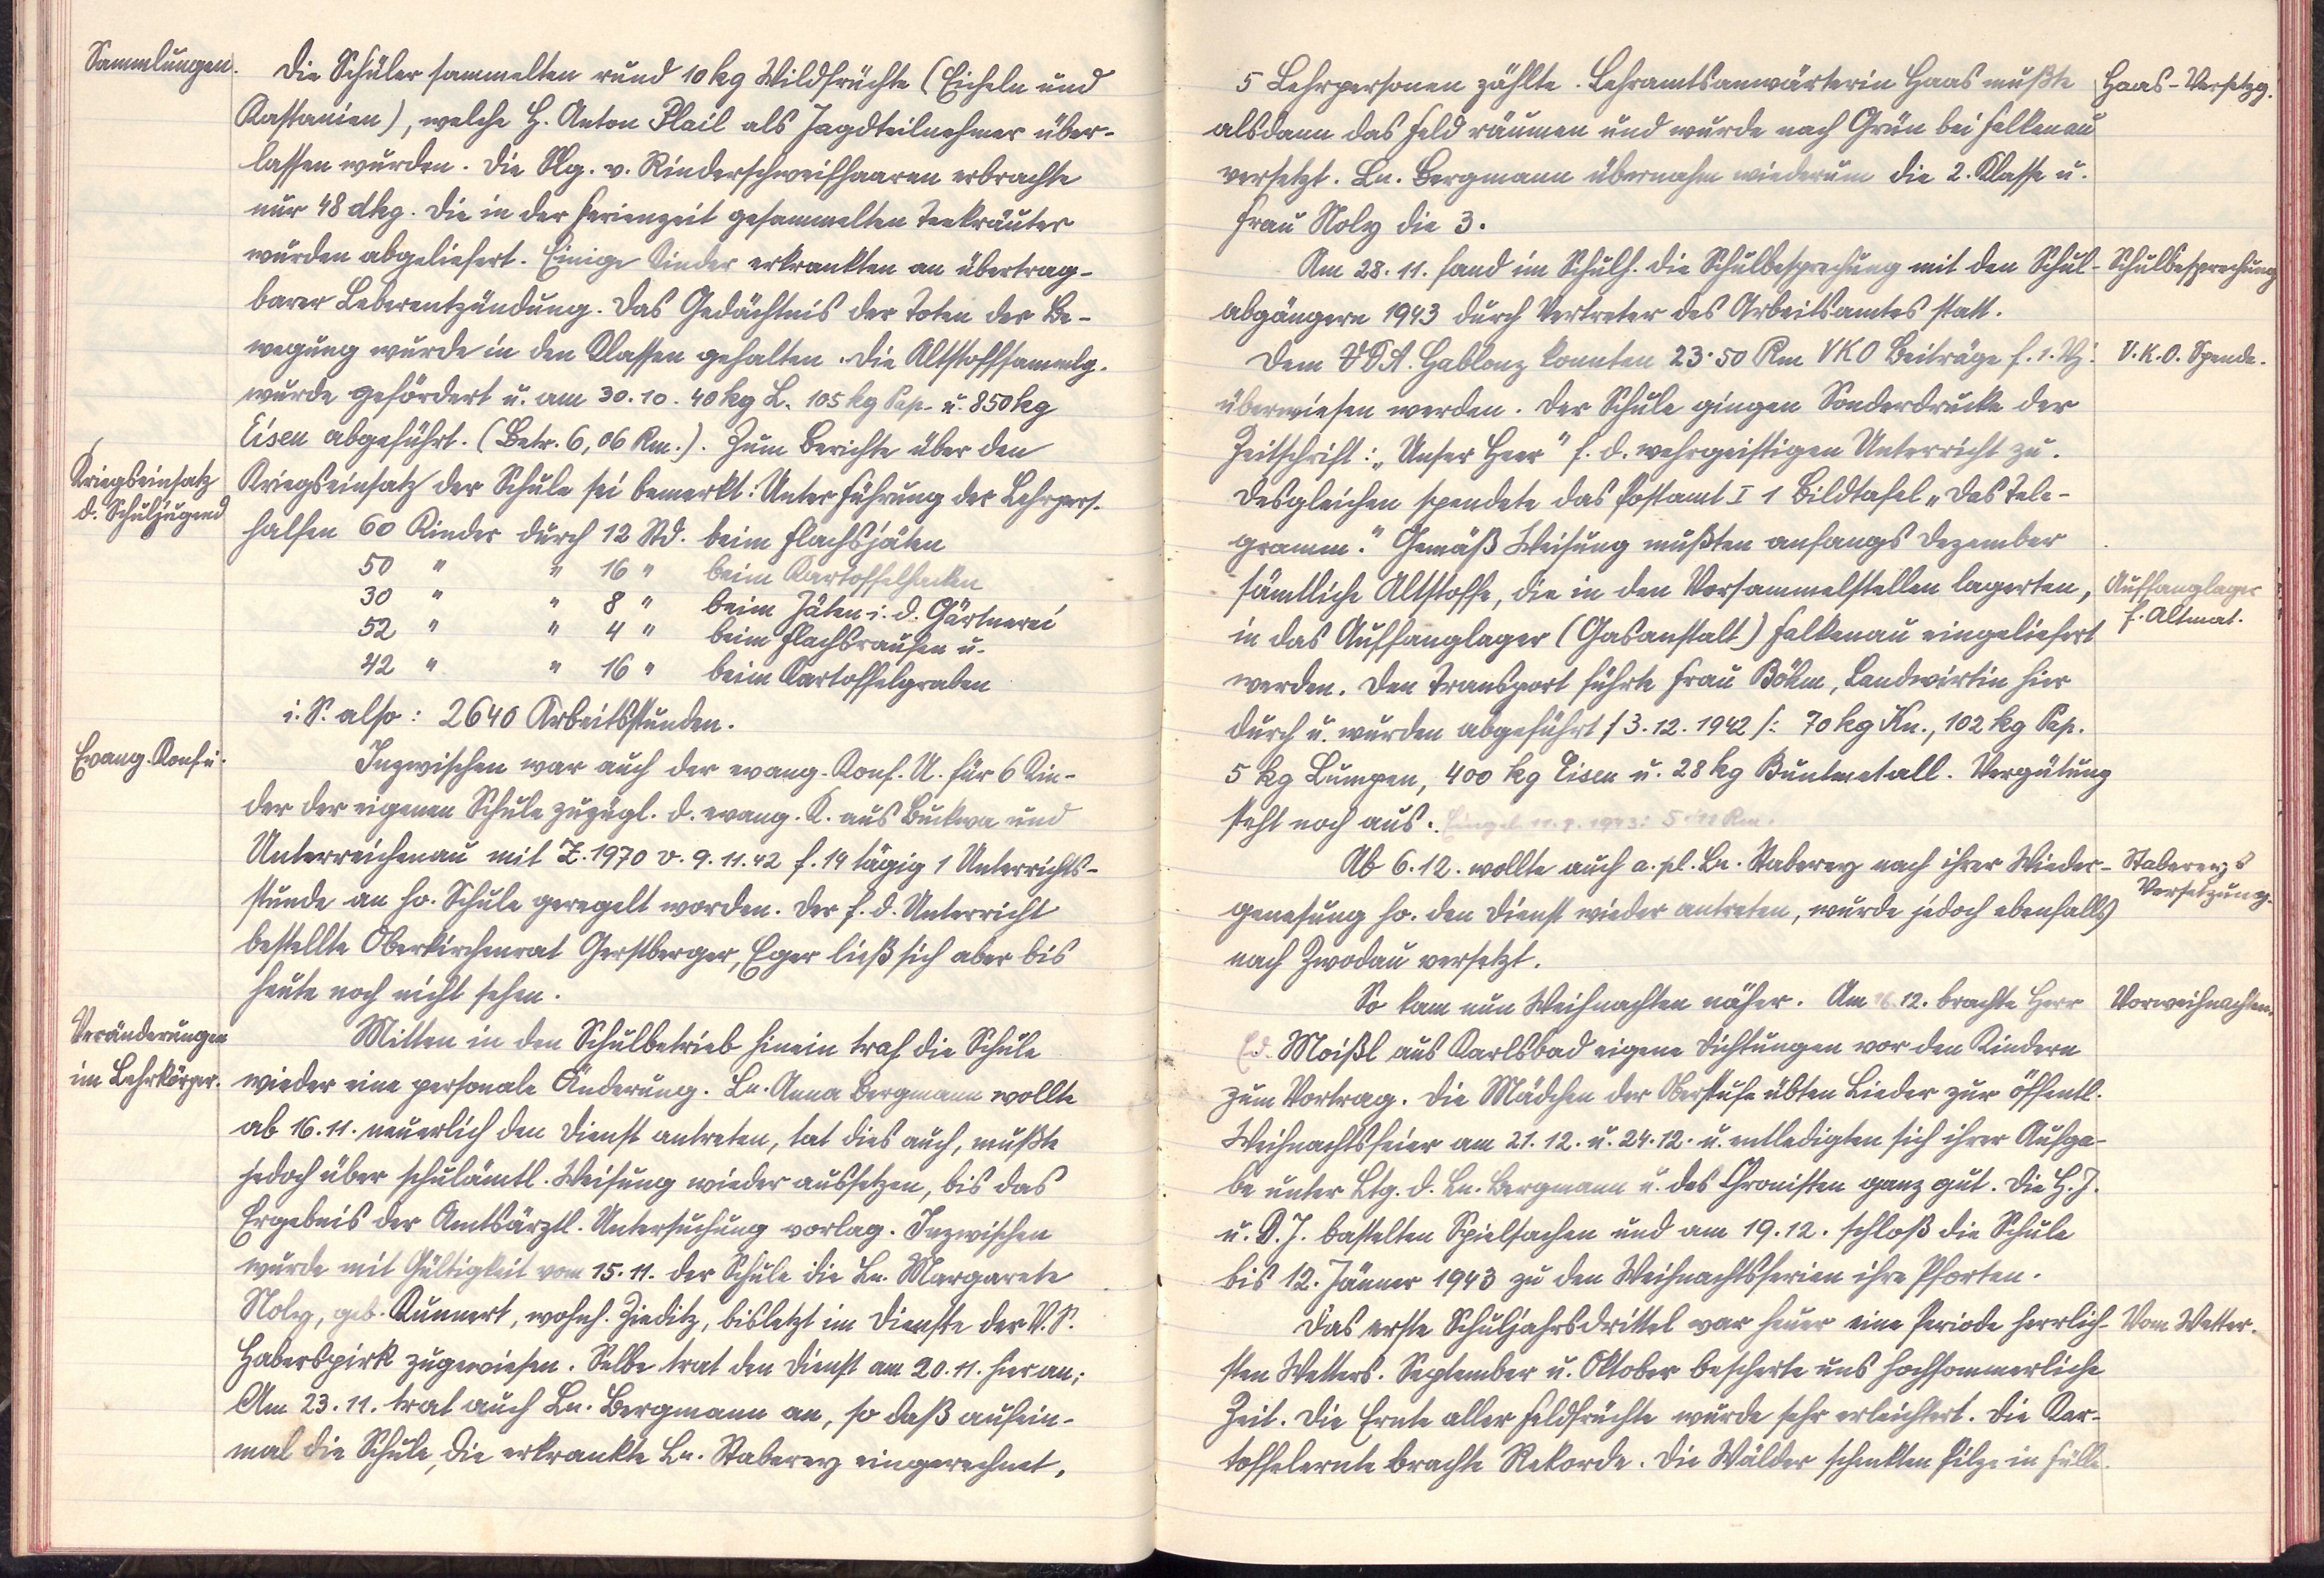 Sammlungen.
Die Schüler sammelten rund 10 kg Wildfrüchte (Eicheln und
Kastanien), welche H. Anton Plail als Jagdteilnehmer über-
lassen wurden. Die Slg. v. Rinderschweifhaaren erbrachte
nur 48 dkg. Die in der Ferienzeit gesammelten Teekräuter
wurden abgeliefert. Einige Kinder erkrankten an übertrag-
barer Leberentzündung. Das Gedächtnis der Toten der Be-
wegung wurde in den Klassen gehalten. Die Altstoffsammlg.
wurde gefördert u. am 30.10. 40 kg L. 105 kg Pap. u. 850 kg
Eisen abgeführt. (Betr. 6,06 Rm.). Zum Berichte über den
Kriegseinsatz
d. Schuljugend
Kriegseinsatz der Schule sei bemerkt: Unter Führung der Lehrpers.
halfen 60 Kinder durch 12 Std. beim Flachsjäten
50 " " 16 " beim Kartoffelhacken
30 " " 8 " beim Jäten i. d. Gärtnerei
52 " " 4 " beim Flachsraufen u.
42 " " 16 " beim Kartoffelgraben
i. S. also: 2640 Arbeitsstunden.
Evang. Konf. u.
Inzwischen war auch der evang. Konf. U. für 6 Kin-
der der eigenen Schule zuzügl. d. evang. K. aus Buckwa und
Unterreichenau mit Z. 1970 v. 9.11.42 f. 14 tägig 1 Unterrichts-
stunde an ho. Schule geregelt worden. Der f. d. Unterricht
bestellte Oberkirchenrat Gerstberger, Eger ließ sich aber bis
heute noch nicht sehen.
Veränderungen
im Lehrkörper.
Mitten in den Schulbetrieb hinein traf die Schule
wieder eine personale Änderung. Ln. Anna Bergmann wollte
ab 16.11. neuerlich den Dienst antreten, tat dies auch, mußte
jedoch über schulämtl. Weisung wieder aussetzen, bis das
Ergebnis der Amtsärztl. Untersuchung vorlag. Inzwischen
wurde mit Gültigkeit vom 15.11. der Schule die Ln. Margarete
Noly, geb. Kunnert, wohnh. Zieditz, bisletzt im Dienste der V.S.
Haberspirk zugewiesen. Selbe trat den Dienst am 20.11. hier an;
Am 23.11. trat auch Ln. Bergmann an, so daß aufein-
mal die Schule, die erkrankte Ln. Staberey eingerechnet,
5 Lehrpersonen zählte. Lehramtsanwärterin Haas mußte
Haas-Versetzg.
alsdann das Feld räumen und wurde nach Grün bei Falkenau
versetzt. Ln. Bergmann übernahm wiederum die 2. Klasse u.
Frau Noly die 3.
Am 28.11. fand im Schulh. die Schulbesprechung mit den Schul-
Schulbesprechung
abgängern 1943 durch Vertreter des Arbeitsamtes statt.
Dem VDA. Gablonz konnten 23·50 Rm VKO Beiträge f. 1. Vj.
V.K.O. Spende.
überwiesen werden. Der Schule gingen Sonderdrucke der
Zeitschrift: „Unser Heer" f. d. wehrgeistigen Unterricht zu.
Desgleichen spendete das Postamt I 1 Bildtafel „Das Tele-
gramm." Gemäß Weisung mußten anfangs Dezember
sämtliche Altstoffe, die in den Vorsammelstellen lagerten,
Auffanglager
f. Altmat.
in das Auffanglager (Gasanstalt) Falkenau eingeliefert
werden. Den Transport führte Frau Böhm, Landwirtin hier
durch u. wurden abgeführt /3.12.1942/: 70 kg Kn., 102 kg Pap.
5 kg Lumpen, 400 kg Eisen u. 28 kg Buntmetall. Vergütung
steht noch aus.
Ab 6.12. wollte auch a. pl. Ln. Staberey nach ihrer Wieder-
Stabereys
Versetzung.
genesung ho. den Dienst wieder antreten, wurde jedoch ebenfalls
nach Zwodau versetzt.
So kam nun Weihnachten näher. Am 16.12. brachte Herr
Vorweihnachten.
Ed. Moißl aus Karlsbad eigene Dichtungen vor den Kindern
zum Vortrag. Die Mädchen der Oberstufe übten Lieder zur öffentl.
Weihnachtsfeier am 21.12. u. 24.12. u. entledigten sich ihrer Aufga-
be unter Ltg. d. Ln. Bergmann u. des Chronisten ganz gut. Die H.J.
u. D.J. bastelten Spielsachen und am 19.12. schloß die Schule
bis 12. Jänner 1943 zu den Weihnachtsferien ihre Pforten.
Das erste Schuljahrsdrittel war heuer eine Periode herrlich-
Vom Wetter.
sten Wetters. September u. Oktober bescherte uns hochsommerliche
Zeit. Die Ernte aller Feldfrüchte wurde sehr erleichtert. Die Kar-
toffelernte brachte Rekorde. Die Wälder schenkten Pilze in Fülle.